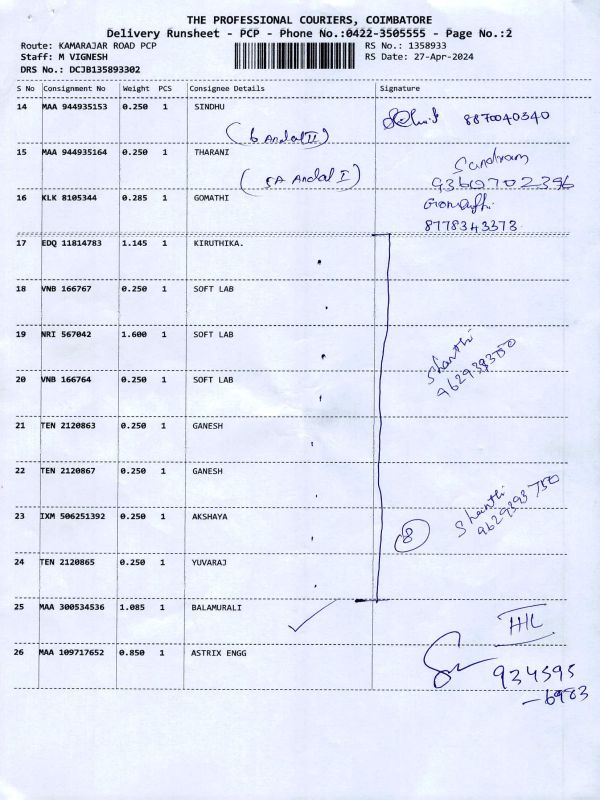 THE PROFESSIONAL COURIERS, COIMBATORE
Delivery Runsheet - PCP - Phone No.:0422-3505555 - Page No.:2
Route: KAMARAJAR ROAD PCP RS No.: 1358933
Staff: M VIGNESH RS Date: 27-Apr-2024
DRS No.: DCJB135893302
S No Consignment No Weight PCS Consignee Details Signature
14 MAA 944935153 0.250 1 SINDHU 8870040340
(6 Andal II)
15 MAA 944935164 0.250 1 THARANI Sandram
(5A Andal I) 9360702396
16 KLK 8105344 0.285 1 GOMATHI
8778343373
17 EDQ 11814783 1.145 1 KIRUTHIKA.
18 VNB 166767 0.250 1 SOFT LAB
19 NRI 567042 1.600 1 SOFT LAB Shanthi
20 VNB 166764 0.250 1 SOFT LAB
21 TEN 2120863 0.250 1 GANESH
22 TEN 2120867 0.250 1 GANESH
23 IXM 506251392 0.250 1 AKSHAYA 8 Shanthi
9629393750
24 TEN 2120865 0.250 1 YUVARAJ
25 MAA 300534536 1.085 1 BALAMURALI
26 MAA 109717652 0.850 1 ASTRIX ENGG 934595
-6903